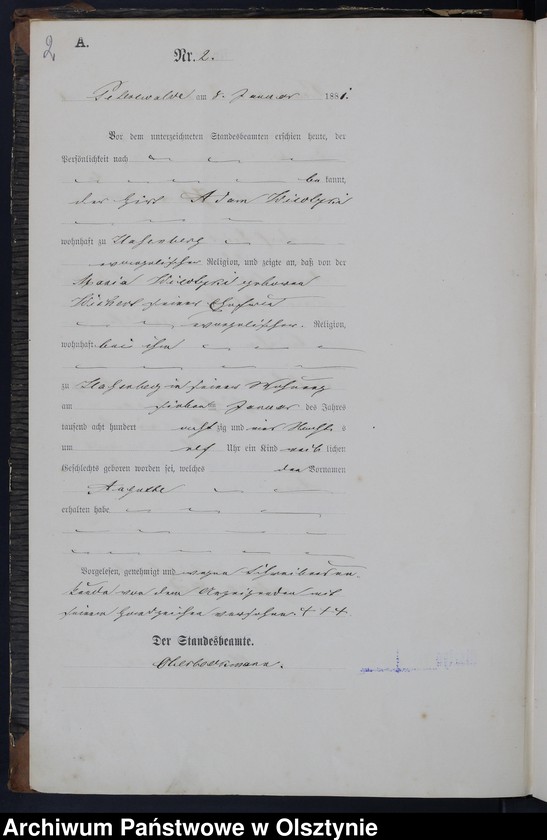 2.
A.
Nr. 2.
am 8. Januar 1881.
Vor dem unterzeichneten Standesbeamten erschien heute, der
Persönlichkeit nach
be kannt,
der Adam
wohnhaft zu
evangelischer Religion, und zeigte an, daß von der
Maria geboren
seiner Ehefrau
evangelischer Religion,
wohnhaft bei ihm
zu in seiner Wohnung
am siebent Januar des Jahres
tausend acht hundert acht zig und Nachts
um elf Uhr ein Kind weib lichen
Geschlechts geboren worden sei, welches den Vornamen
erhalten habe
Vorgelesen, genehmigt und wegen Schreibensun-
kunde von dem Anzeigenden mit
seinem Handzeichen versehen. + + +
Der Standesbeamte.
Archiwum Państwowe w Olsztynie